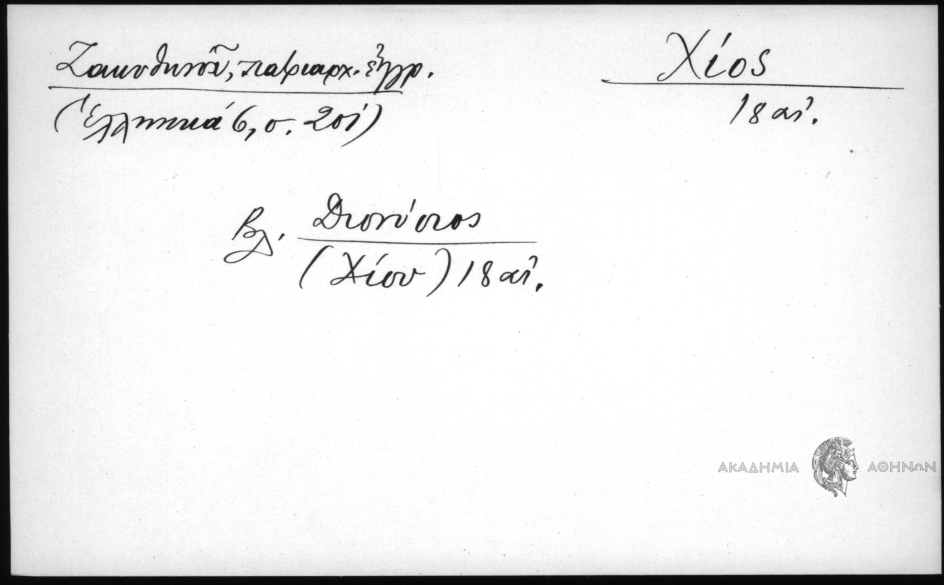 Ζακυθηνοῦ, πατριαρχ. ἔγγρ.
(Ἑλληνικά 6, σ. 201)
Χίος
18 αἰ.
βλ. Διονύσιος
(Χίου) 18 αἰ.
ΑΚΑΔΗΜΙΑ ΑΘΗΝΩΝ